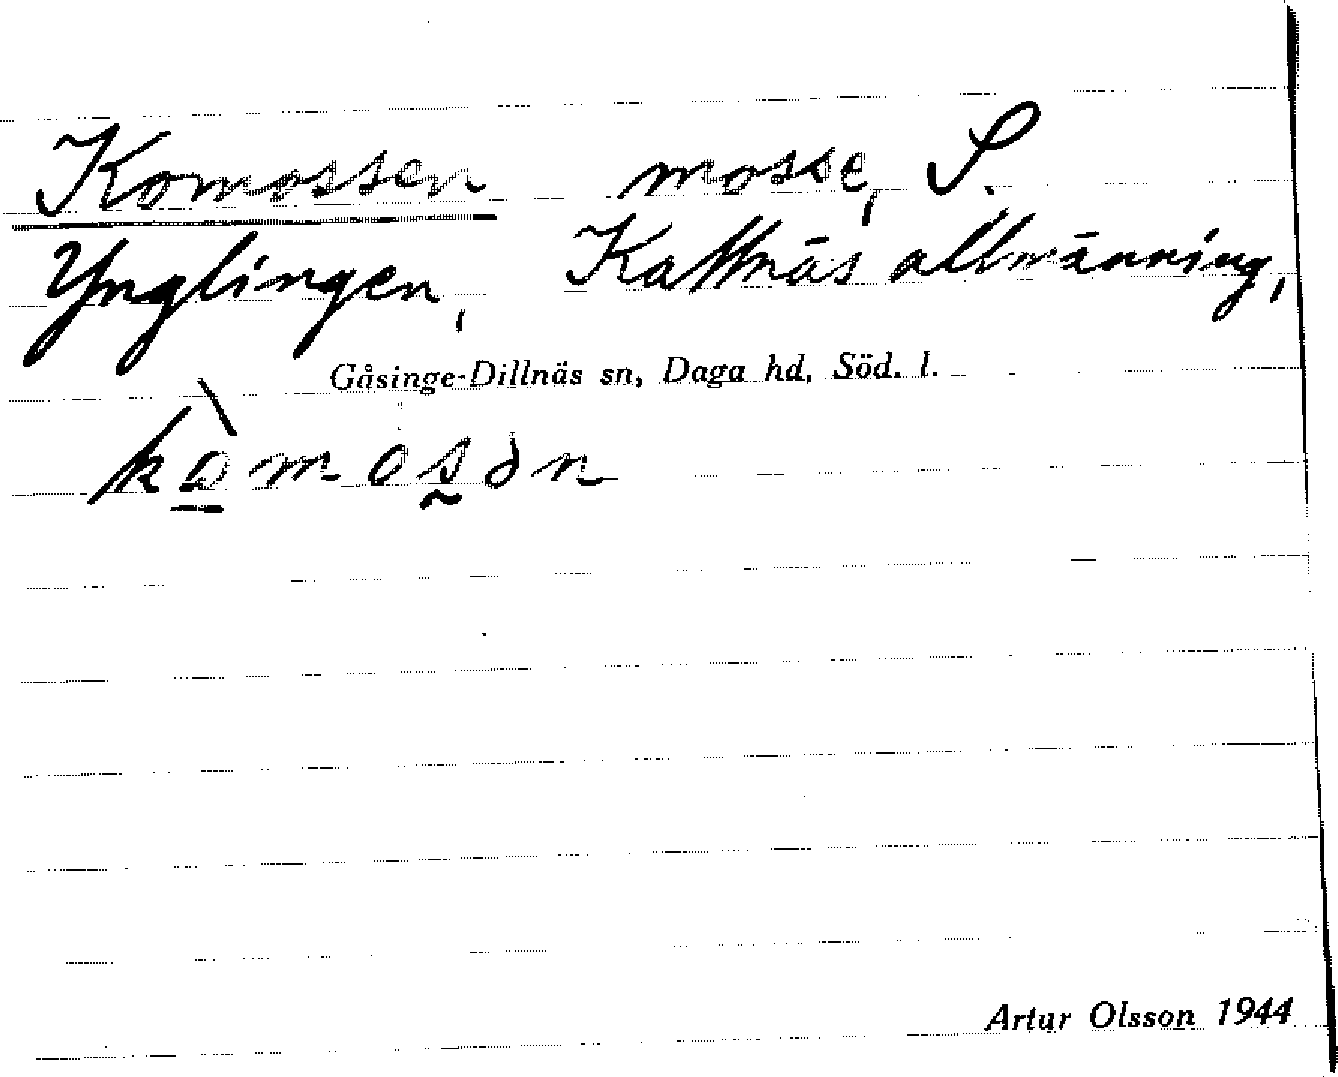 Komossen mosse, S.
Ynglingen, Kattnäs allmänning,
Gåsinge-Dillnäs sn, Daga hd, Söd. l.
Artur Olsson 1944